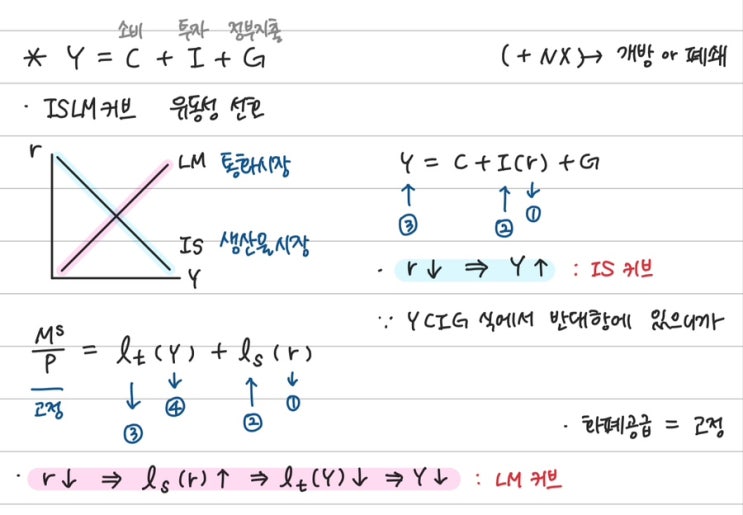 소비 투자 정부지출
* Y = C + I + G (+ NX) → 개방 or 폐쇄
· ISLM커브 유동성 선호
r
LM 통화시장
Y = C + I(r) + G
↑ ↑ ↓
③ ② ①
IS 생산물시장
Y
· r↓ ⇒ Y↑ : IS 커브
∵ YCIG 식에서 반대항에 있으니까
Mˢ/P = lt(Y) + ls(r)
고정 ↓ ↓ ↑ ↓
③ ④ ② ①
· 화폐공급 = 고정
· r↓ ⇒ ls(r)↑ ⇒ lt(Y)↓ ⇒ Y↓ : LM 커브